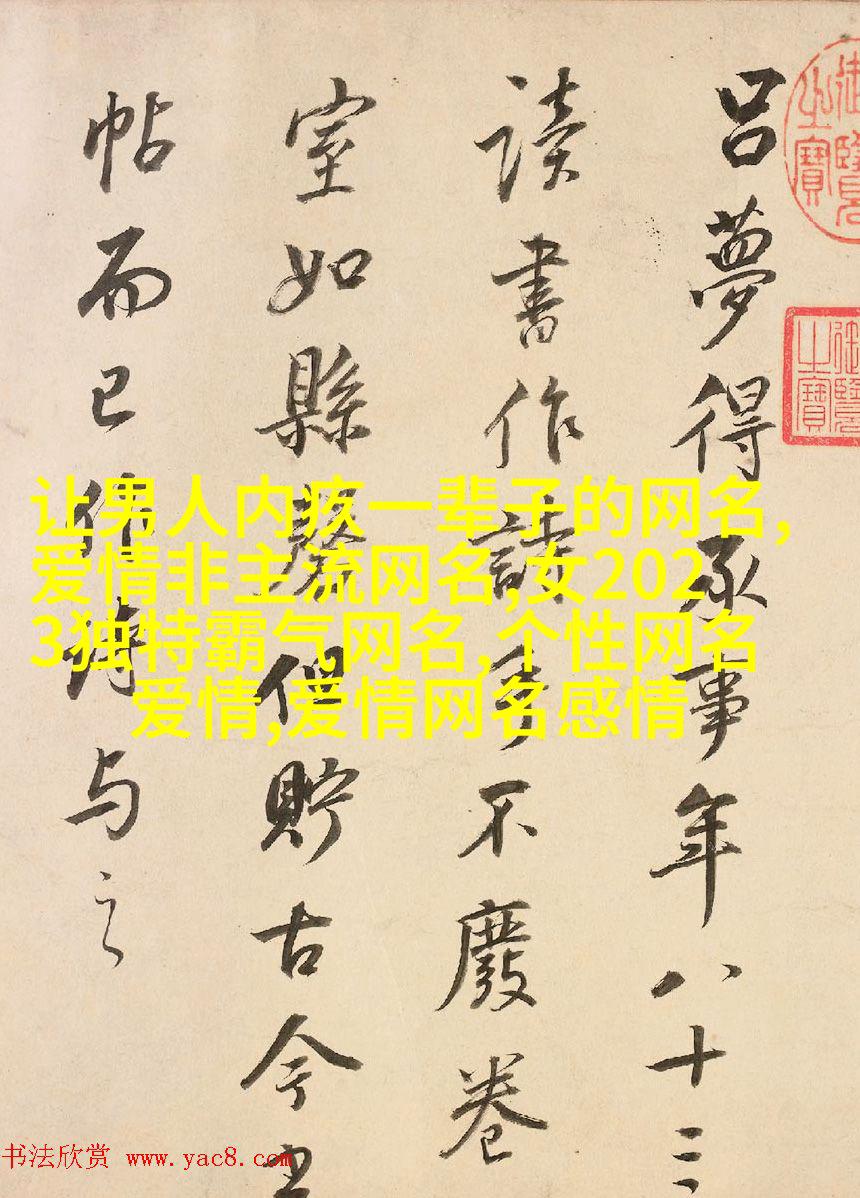 吕夢得承事年八十三
讀書作詩手不廢卷
室如縣磬但貯古今
帖而已作詩與之
御覽之寶
御覽之寶
让男人内疚一辈子的网名,
爱情非主流网名,女202
3独特霸气网名,个性网名
爱情,爱情网名感情
书法欣赏 www.yac8.com